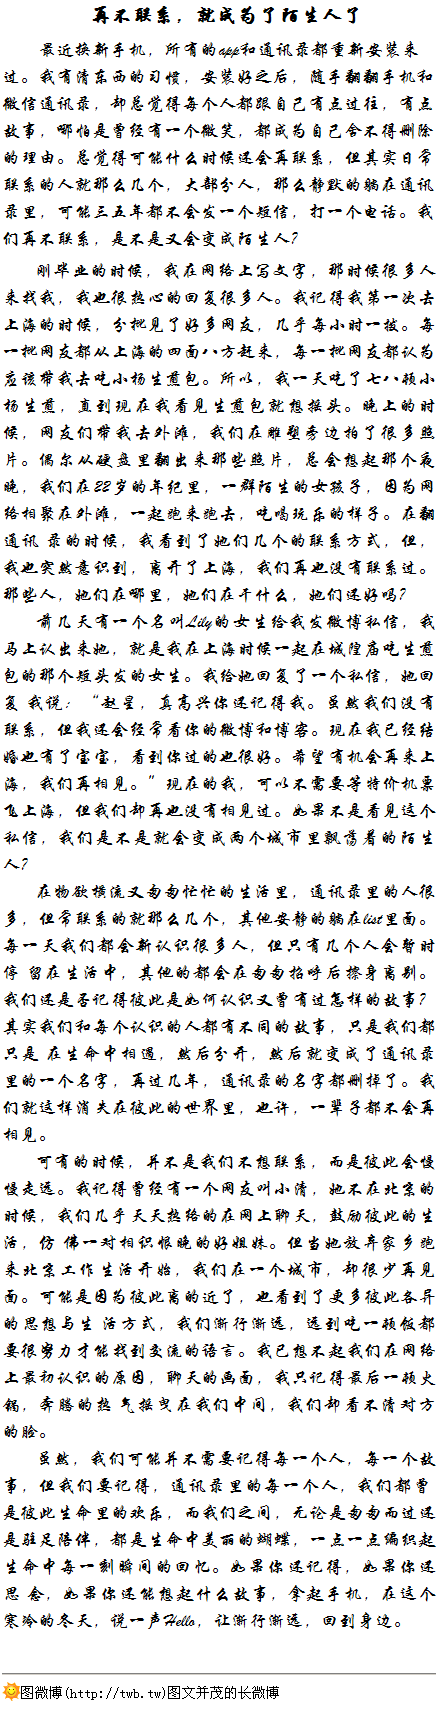 再不联系，就成为了陌生人了
最近换新手机，所有的app和通讯录都重新安装来
过。我有清东西的习惯，安装好之后，随手翻翻手机和
微信通讯录，却总觉得每个人都跟自己有点过往，有点
故事，哪怕是曾经有一个微笑，都成为自己舍不得删除
的理由。总觉得可能什么时候还会再联系，但其实日常
联系的人就那么几个，大部分人，那么静默的躺在通讯
录里，可能三五年都不会发一个短信，打一个电话。我
们再不联系，是不是又会变成陌生人？
刚毕业的时候，我在网络上写文字，那时候很多人
来找我，我也很热心的回复很多人。我记得我第一次去
上海的时候，分批见了好多网友，几乎每小时一拨。每
一批网友都从上海的四面八方赶来，每一批网友都认为
应该带我去吃小杨生煎包。所以，我一天吃了七八顿小
杨生煎，直到现在我看见生煎包就想摇头。晚上的时
候，网友们带我去外滩，我们在雕塑旁边拍了很多照
片。偶尔从硬盘里翻出来那些照片，总会想起那个夜
晚，我们在22岁的年纪里，一群陌生的女孩子，因为网
络相聚在外滩，一起跑来跑去，吃喝玩乐的样子。在翻
通讯 录的时候，我看到了她们几个的联系方式，但，
我也突然意识到，离开了上海，我们再也没有联系过。
那些人，她们在哪里，她们在干什么，她们还好吗？
前几天有一个名叫Lily的女生给我发微博私信，我
马上认出来她，就是我在上海时候一起在城隍庙吃生煎
包的那个短头发的女生。我给她回复了一个私信，她回
复 我说：“赵星，真高兴你还记得我。虽然我们没有
联系，但我还会经常看你的微博和博客。现在我已经结
婚也有了宝宝，看到你过的也很好。希望有机会再来上
海，我们再相见。”现在的我，可以不需要等特价机票
飞上海，但我们却再也没有相见过。如果不是看见这个
私信，我们是不是就会变成两个城市里飘荡着的陌生
人？
在物欲横流又匆匆忙忙的生活里，通讯录里的人很
多，但常联系的就那么几个，其他安静的躺在list里面。
每一天我们都会新认识很多人，但只有几个人会暂时
停 留在生活中，其他的都会在匆匆招呼后擦身离别。
我们还是否记得彼此是如何认识又曾有过怎样的故事？
其实我们和每个认识的人都有不同的故事，只是我们都
只是 在生命中相遇，然后分开，然后就变成了通讯录
里的一个名字，再过几年，通讯录的名字都删掉了。我
们就这样消失在彼此的世界里，也许，一辈子都不会再
相见。
可有的时候，并不是我们不想联系，而是彼此会慢
慢走远。我记得曾经有一个网友叫小清，她不在北京的
时候，我们几乎天天热络的在网上聊天，鼓励彼此的生
活，仿 佛一对相识恨晚的好姐妹。但当她放弃家乡跑
来北京工作生活开始，我们在一个城市，却很少再见
面。可能是因为彼此离的近了，也看到了更多彼此各异
的思想与生 活方式，我们渐行渐远，远到吃一顿饭都
要很努力才能找到交流的语言。我已想不起我们在网络
上最初认识的原因，聊天的画面，我只记得最后一顿火
锅，奔腾的热 气摇曳在我们中间，我们却看不清对方
的脸。
虽然，我们可能并不需要记得每一个人，每一个故
事，但我们要记得，通讯录里的每一个人，我们都曾
是彼此生命里的欢乐，而我们之间，无论是匆匆而过还
是驻足陪伴，都是生命中美丽的蝴蝶，一点一点编织起
生命中每一刻瞬间的回忆。如果你还记得，如果你还
思 念，如果你还能想起什么故事，拿起手机，在这个
寒冷的冬天，说一声Hello，让渐行渐远，回到身边。
图微博(http://twb.tw)图文并茂的长微博